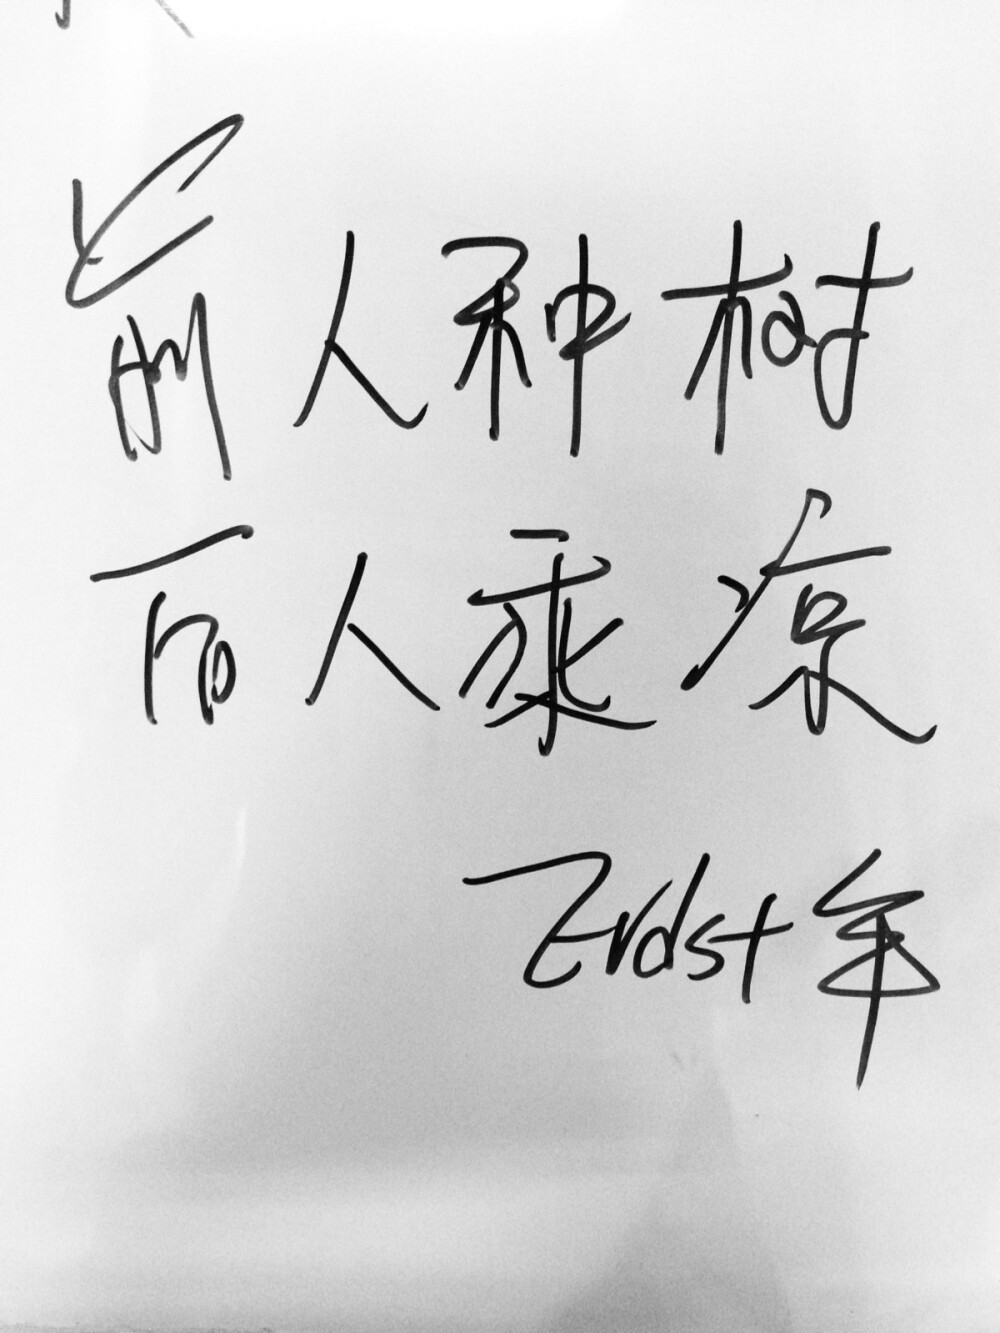 前人种树
后人乘凉
Erdst年